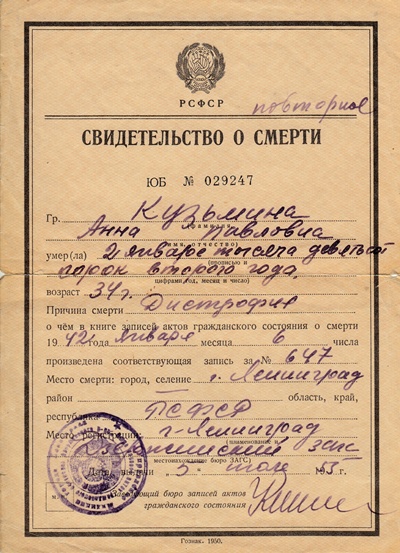 РСФСР
повторное
СВИДЕТЕЛЬСТВО О СМЕРТИ
ЮБ № 029247
Гр. Кузьмина
(фамилия)
Анна Павловна
(имя, отчество)
умер(ла) 2 января тысяча девятьсот
(прописью и
сорок второго года
цифрами: год, месяц и число)
возраст 34 г.
Причина смерти Дистрофия
о чём в книге записей актов гражданского состояния о смерти
1942 года января месяца 6 числа
произведена соответствующая запись за № 647
Место смерти: город, селение г. Ленинград
район область, край,
республика РСФСР
Место регистрации г. Ленинград
(наименование и
загс
местонахождение бюро ЗАГС)
Дата выдачи 5 1955 г.
Заведующий бюро записей актов
гражданского состояния
Гознак. 1950.